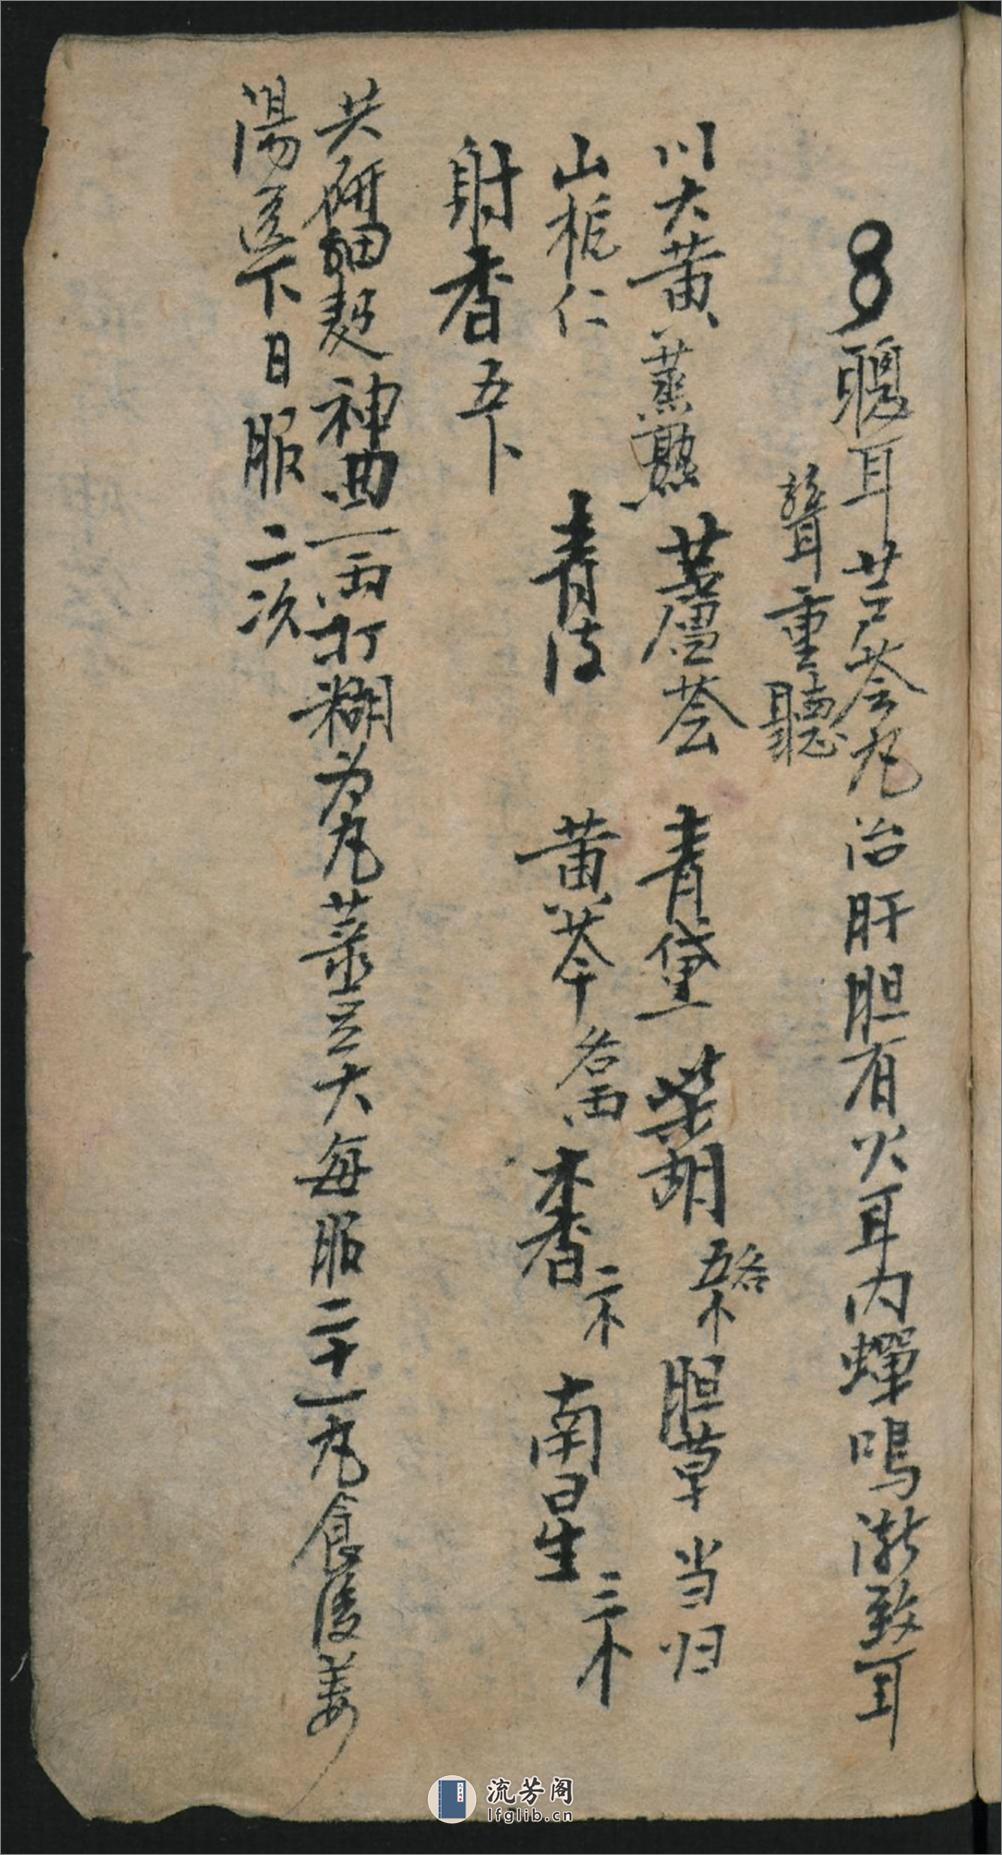 聤耳芦荟丸治肝胆有火耳内蟬鳴漸致耳
聾重聽
川大黄蒸熟 芦薈 青黛 柴胡各五木 胆草 当归
山栀仁 青皮 黄芩各一両 木香二木 南星三木
射香五卜
共研細麪神曲一両打糊为丸菉豆大每服二十一丸食後姜
湯送下日服二次
流芳阁
lfglib.cn